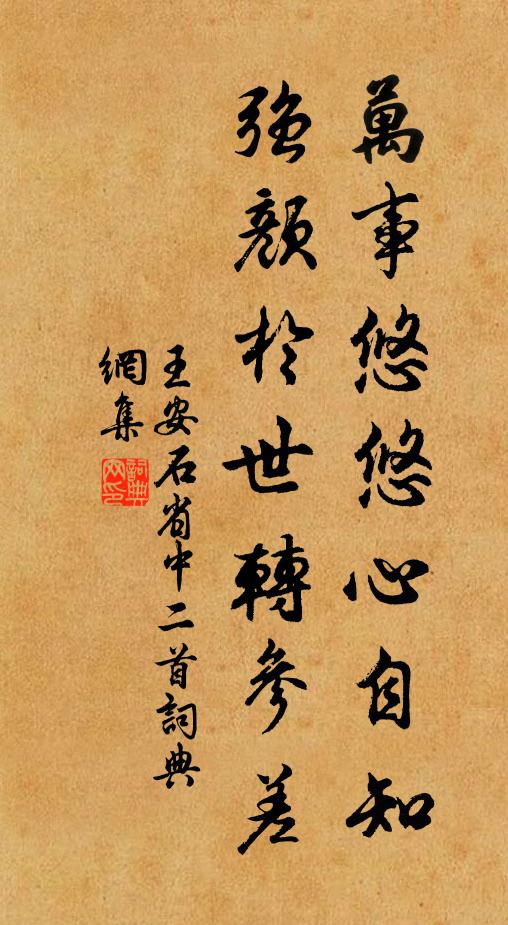 萬事悠悠心自知
强顏於世轉參差
王安石省中二首詞典
網集
詞典
网印